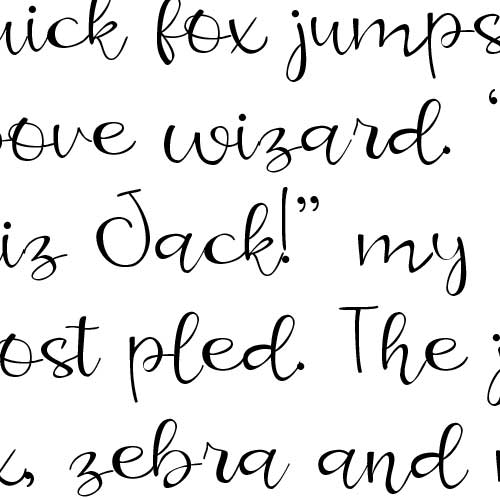 uick fox jumps
bove wizard. “
iz Jack!” my
ost pled. The j
x, zebra and m